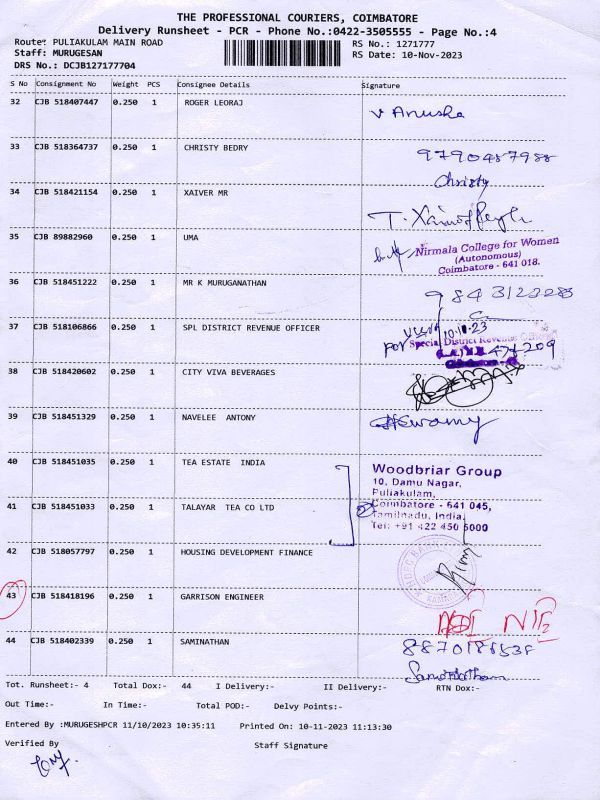 THE PROFESSIONAL COURIERS, COIMBATORE
Delivery Runsheet - PCR - Phone No.:0422-3505555 - Page No.:4
Route: PULIAKULAM MAIN ROAD
Staff: MURUGESAN
DRS No.: DCJB127177704
RS No.: 1271777
RS Date: 10-Nov-2023
S No Consignment No Weight PCS Consignee Details Signature
32 CJB 518407447 0.250 1 ROGER LEORAJ
V Anusha
33 CJB 518364737 0.250 1 CHRISTY BEDRY
9790487988
Christy
34 CJB 518421154 0.250 1 XAIVER MR
35 CJB 89882960 0.250 1 UMA
Nirmala College for Women
(Autonomous)
Coimbatore - 641 018.
36 CJB 518451222 0.250 1 MR K MURUGANATHAN
9843122283
37 CJB 518106866 0.250 1 SPL DISTRICT REVENUE OFFICER
10.11.23
Special District Revenue
38 CJB 518420602 0.250 1 CITY VIVA BEVERAGES
39 CJB 518451329 0.250 1 NAVELEE ANTONY
40 CJB 518451035 0.250 1 TEA ESTATE INDIA
Woodbriar Group
10, Damu Nagar,
Puliakulam,
41 CJB 518451033 0.250 1 TALAYAR TEA CO LTD
Coimbatore - 641 045,
Tamilnadu, India.
Tel: +91 422 450 5000
42 CJB 518057797 0.250 1 HOUSING DEVELOPMENT FINANCE
43 CJB 518418196 0.250 1 GARRISON ENGINEER
44 CJB 518402339 0.250 1 SAMINATHAN
Tot. Runsheet:- 4 Total Dox:- 44 I Delivery:- II Delivery:- RTN Dox:-
Out Time:- In Time:- Total POD:- Delvy Points:-
Entered By :MURUGESHPCR 11/10/2023 10:35:11 Printed On: 10-11-2023 11:13:30
Verified By Staff Signature